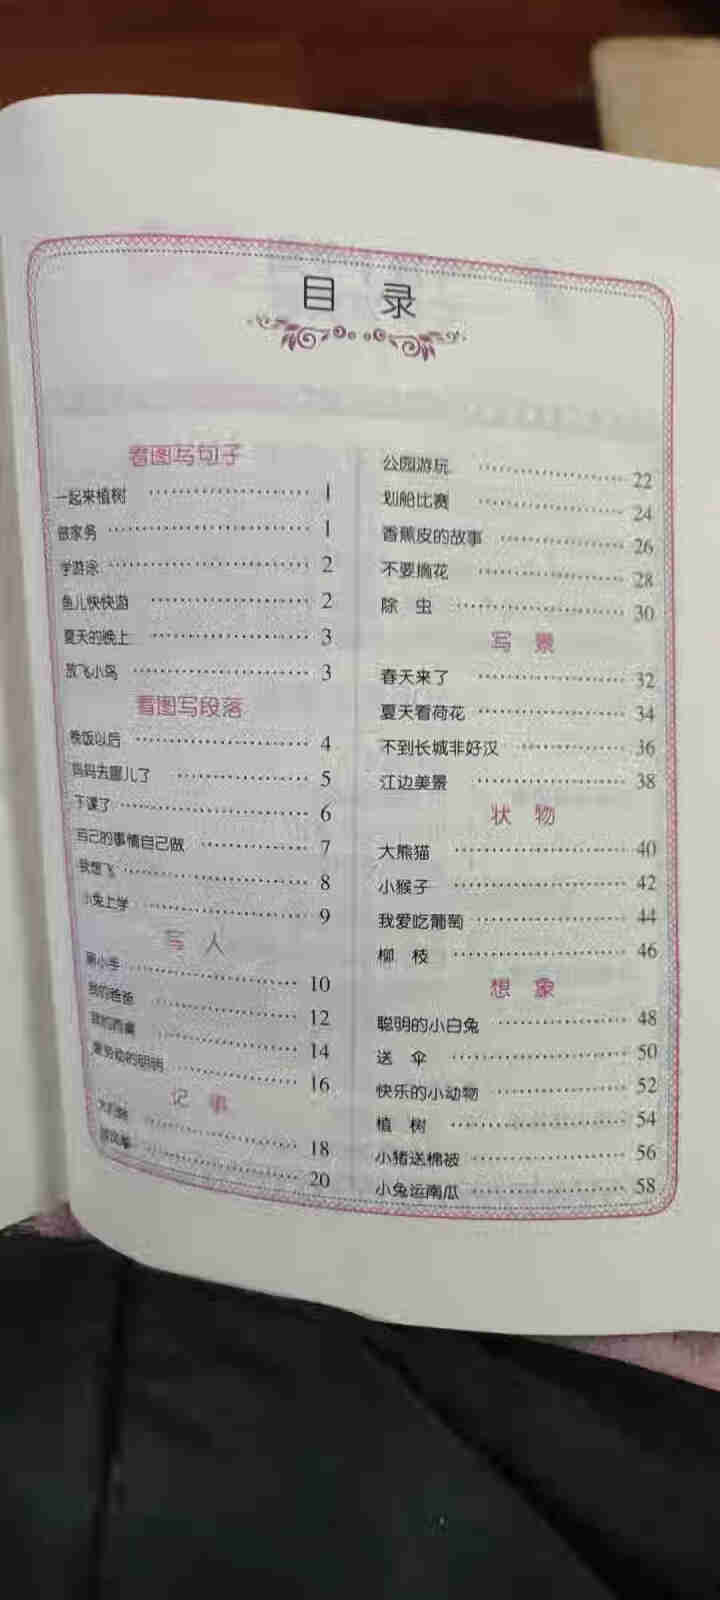 目 录
看图写句子
一起来植树 ……………… 1
做家务 ……………… 1
学游泳 ……………… 2
鱼儿快快游 ……………… 2
夏天的晚上 ……………… 3
放飞小鸟 ……………… 3
看图写段落
晚饭以后 ……………… 4
妈妈去哪儿了 ……………… 5
下课了 ……………… 6
自己的事情自己做 ……………… 7
我想飞 ……………… 8
小兔上学 ……………… 9
写 人
……………… 10
我的爸爸 ……………… 12
……………… 14
爱劳动的明明 ……………… 16
记 事
……………… 18
放风筝 ……………… 20
公园游玩 ……………… 22
划船比赛 ……………… 24
香蕉皮的故事 ……………… 26
不要摘花 ……………… 28
除 虫 ……………… 30
写 景
春天来了 ……………… 32
夏天看荷花 ……………… 34
不到长城非好汉 ……………… 36
江边美景 ……………… 38
状 物
大熊猫 ……………… 40
小猴子 ……………… 42
我爱吃葡萄 ……………… 44
柳 枝 ……………… 46
想 象
聪明的小白兔 ……………… 48
送 伞 ……………… 50
快乐的小动物 ……………… 52
植 树 ……………… 54
小猪送棉被 ……………… 56
小兔运南瓜 ……………… 58